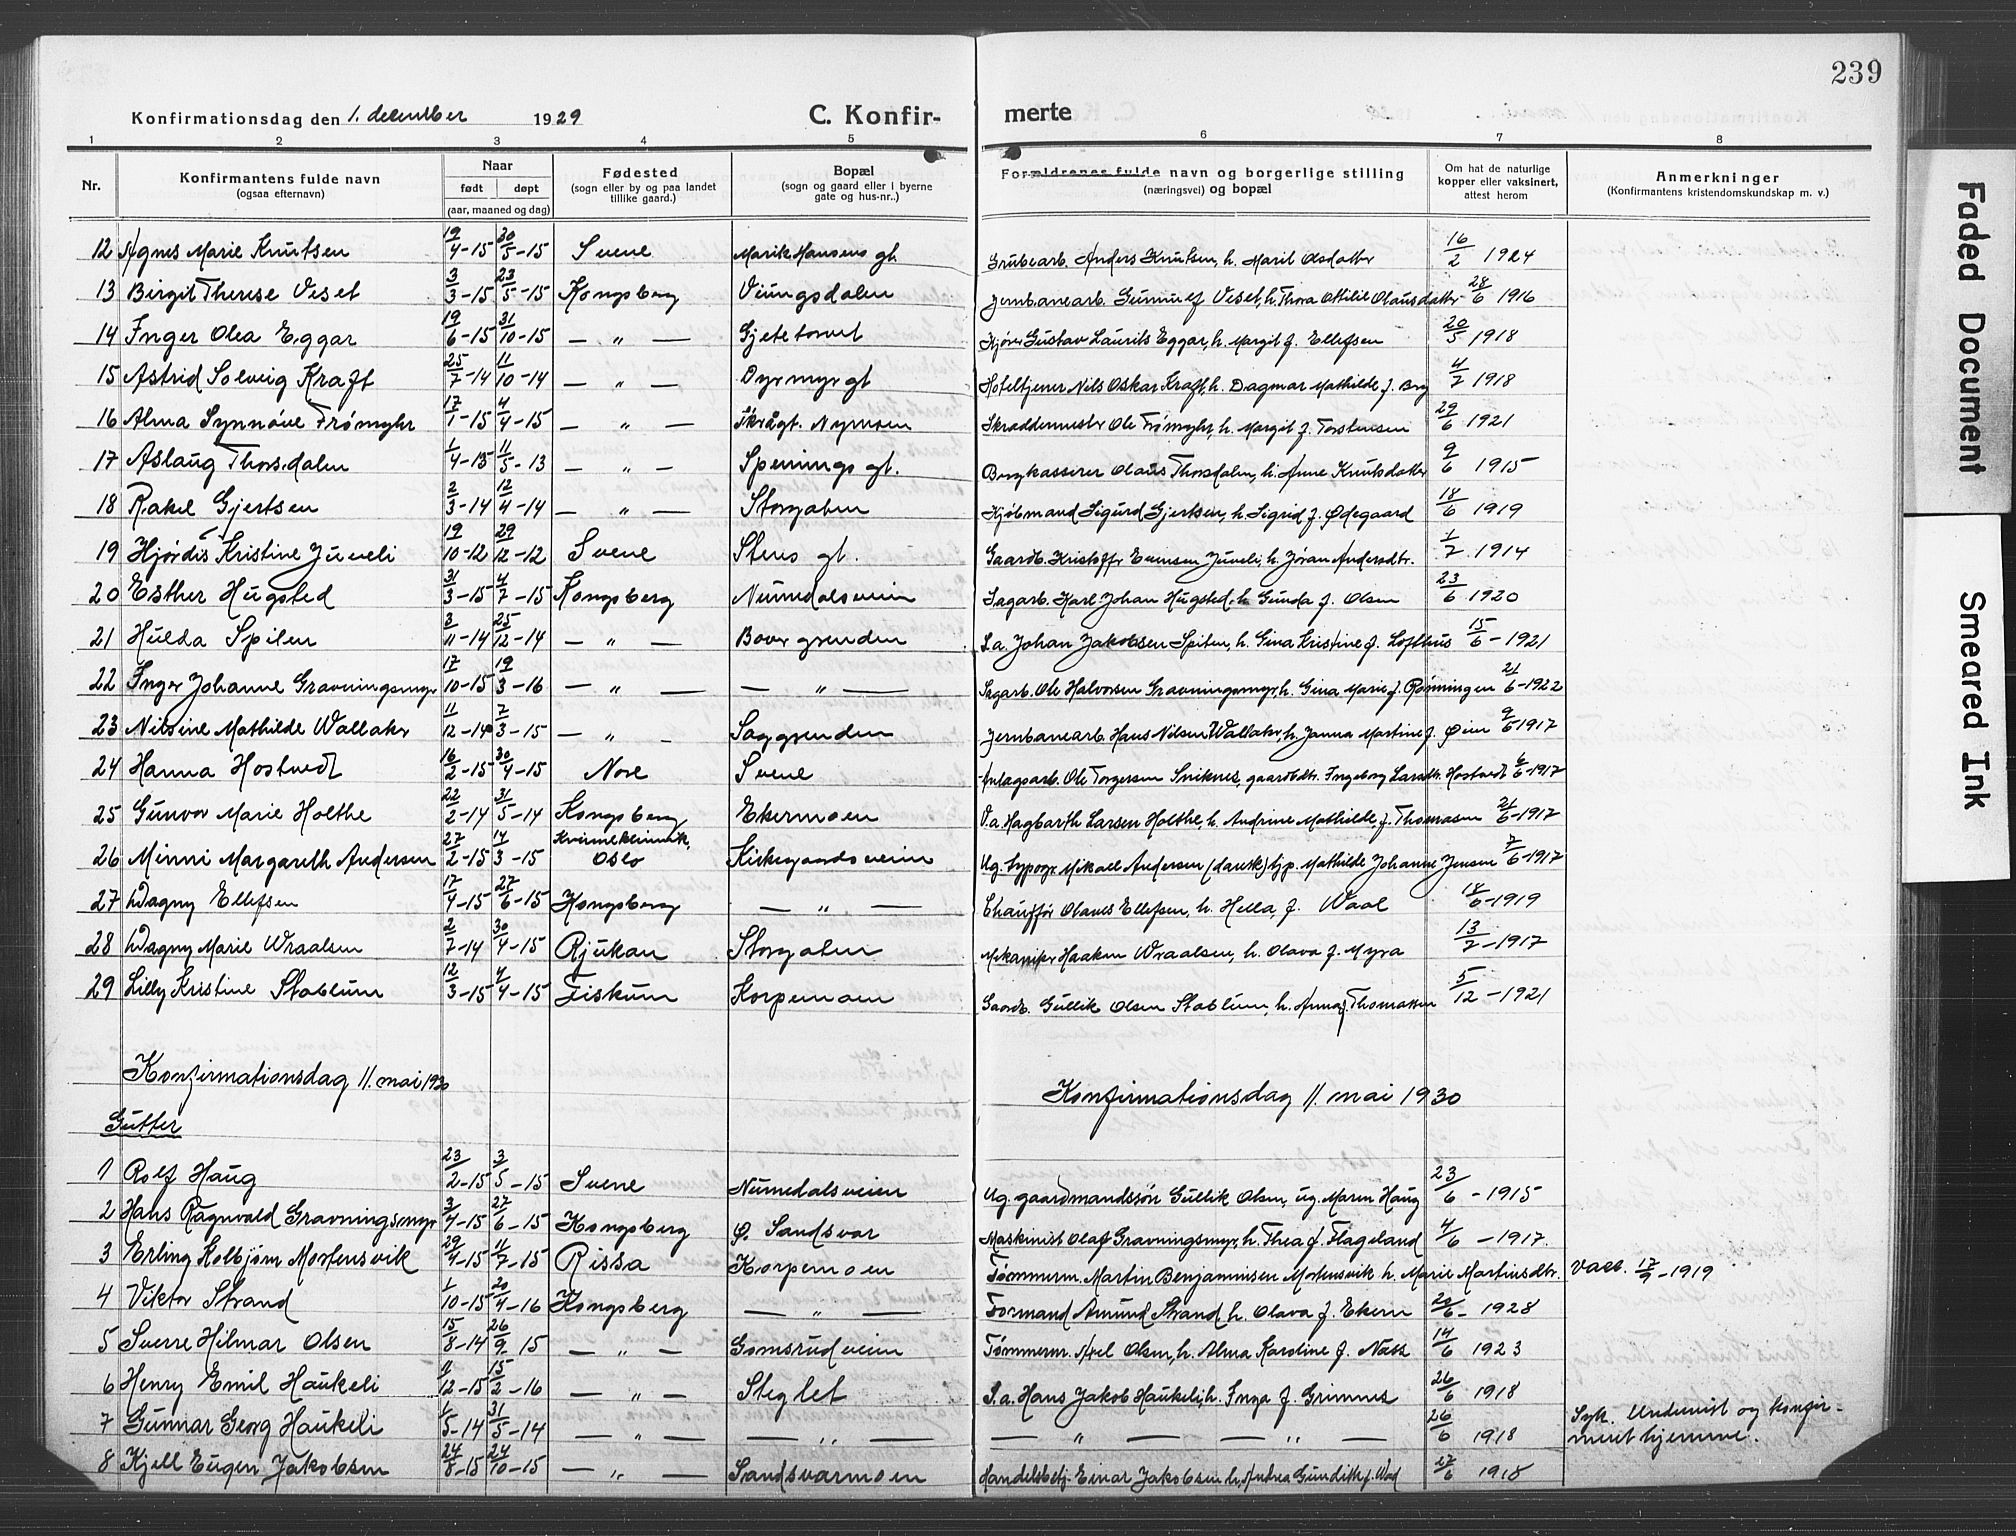 239
Konfirmationsdag den 1. december 1929 C. Konfir- merte
1 2 3 4 5 6 7 8
Nr. Konfirmantens fulde navn (ogsaa efternavn) Naar født døpt (aar, maaned og dag) Fødested (sogn eller by og paa landet tillike gaard.) Bopæl (sogn og gaard eller i byerne gate og hus-nr..) Forældrenes fulde navn og borgerlige stilling (næringsvei) og bopæl Om hat de naturlige kopper eller vaksinert, attest herom Anmerkninger (Konfirmantens kristendomskundskap m. v.)
12 Agnes Marie Knutsen 19/4-15 30/5-15 Svene Marik Hansens gt. Grubearb. Anders Knutsen, h. Marit Olsdatter 16/2 1924
13 Birgit Therese Veset 3/3-15 23/5-15 Kongsberg Viungsdalen Jernbanearb. Gunnulf Veset, h. Thora Ottilie Olausdatter 28/6 1916
14 Inger Olea Eggar 19/6-15 31/10-15 — " — Gjetetorvet Kjører Gustav Laurits Eggar, h. Margit f. Ellefsen 20/5 1918
15 Astrid Solveig Kraft 25/7-14 11/10-14 — " — Dyrmyrgt Hoteltjener Nils Oskar Kraft, h. Dagmar Mathilde f. Berg 4/7 1918
16 Alma Synnøve Frømyhr 17/1-15 4/4-15 — " — Skrågt. Nymoen Skreddermester Ole Frømyhr, h. Margit f. Torstensen 29/6 1921
17 Aslaug Thorsdalen 1/4-13 11/5-13 — " — Spennings gt. Bergkasserer Olaus Thorsdalen, h. Anne Knutsdatter 9/6 1915
18 Rakel Gjertsen 2/3-14 12/4-14 — " — Storgaten Kjøbmand Sigurd Gjertsen, h. Sigrid f. Ødegaard 18/6 1919
19 Hjørdis Kristine Juveli 19/10-12 29/12-12 Svene Stens gt. Gaardb. Kristoffer Evensen Juveli, h. Jøran Andersdtr. 1/7 1914
20 Esther Hugsted 31/3-15 4/7-15 Kongsberg Numedalsveien Sagarb. Karl Johan Hugsted, h. Gunda f. Olsen 23/6 1920
21 Hulda Spiten 3/11-14 25/12-14 — " — Bævergrenden S.a. Johan Jakobsen Spiten, h. Gina Kristine f. Lofthus 15/6-1921
22 Inger Johanne Gravningsmyr 17/10-15 19/3-16 — " — — " — Sagarb. Ole Halvorsen Gravningsmyr, h. Gina Marie f. Rønningen 21/6-1922
23 Nilsine Mathilde Wallaker 11/12-14 7/3-15 — " — Saggrenden Jernbanearb. Hans Nilsen Wallaker, h. Janna Martine f. Øien 9/6 1917
24 Hanna Hostvedt 16/2-15 30/4-15 Nore Svene Anlagsarb. Ole Torgersen Sniknes, gaardbdtr. Ingeborg Larsdtr. Hostvedt 6/6-1917
25 Gunvor Marie Holthe 22/2-14 31/5-14 Kongsberg Ekermoen V.a. Hagbarth Larsen Holthe, h. Andrine Mathilde f. Thomasen 21/6-1917
26 Minni Margareth Andersen 27/2-15 14/3-15 Kvinneklinnik, Oslo Kirkegaardsveien Ug. typogr. Mikael Andersen (dansk) tjp. Mathilde Johanne Jensen 7/6-1917
27 Dagny Ellefsen 17/4-15 27/6-15 Kongsberg — " — Chauffør Olaves Ellefsen, h. Helia, f. Waal 18/6-1919
28 Dagny Marie Wraalsen 2/7-14 30/4-15 Rjukan Storgaten Mekaniker Haaken Wraalsen, h. Olava f. Myra 13/7-1917
29 Lilly Kristine Stablum 12/3-15 4/4-15 Fiskum Korpemoen Gaardb. Gullik Olsen Stablum, h. Anna f. Thomassen 5/12-1921
Konfirmationsdag 11. mai 1930 Konfirmationsdag 11. mai 1930
Gutter
1 Rolf Haug 23/2-15 3/5-15 Svene Numedalsveien Ug. gaardmandssøn Gullik Olsen, ug. Maren Haug 23/6-1915
2 Hans Ragnvald Gravningsmyr 3/4-15 27/6-15 Kongsberg Ø. Sandsvær Maskinist Olaf Gravningsmyr, h. Thea f. Flageland 4/6-1917.
3 Erling Kolbjørn Mortensvik 29/4-15 11/7-15 Rissa Korpemoen Tømmerm. Martin Benjaminsen Mortensvik h. Marie Martinsdtr. Vacc. 17/9-1919
4 Viktor Strand 1/10-15 20/4-16 Kongsberg — " — Formand Amund Strand, h. Olava f. Ekern 20/6-1928
5 Sverre Hilmar Olsen 15/8-14 26/9-15 — " — Gomsrudveien Tømmerm. Axel Olsen, h. Alma Karoline f. Næss 14/6 1923
6 Henry Emil Haukeli 9/12-15 15/2-16 — " — Steglet S.a. Hans Jakob Haukeli, h. Inga f. Grimnes 26/6 1918
7 Gunnar Georg Haukeli 1/5-14 31/5-14 — " — — " — — " — — " — 26/6 1918 Syk. Undervist og konfir-
meret hjemme.
8 Kjell Eugen Jakobsen 24/8-15 24/10-15 — " — Sandsværmoen Handelsbetj. Einar Jakobsen, h. Andrea Gunditte f. Wad 27/6 1918
Faded Document
Smeared Ink